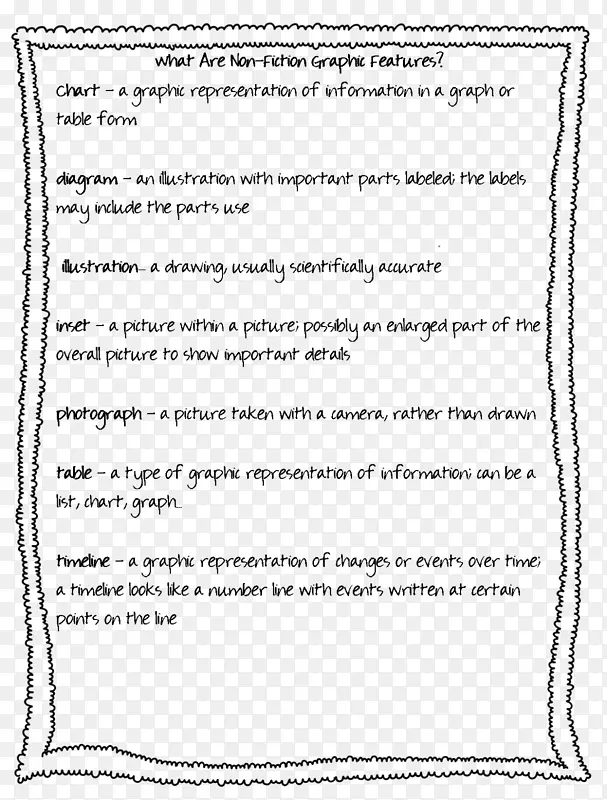 What Are Non-Fiction Graphic Features?
Chart - a graphic representation of information in a graph or
table form
diagram - an illustration with important parts labeled; the labels
may include the parts use
illustration... a drawing, usually scientifically accurate
inset - a picture within a picture; possibly an enlarged part of the
overall picture to show important details
photograph - a picture taken with a camera, rather than drawn
table - a type of graphic representation of information; can be a
list, chart, graph...
timeline - a graphic representation of changes or events over time;
a timeline looks like a number line with events written at certain
points on the line